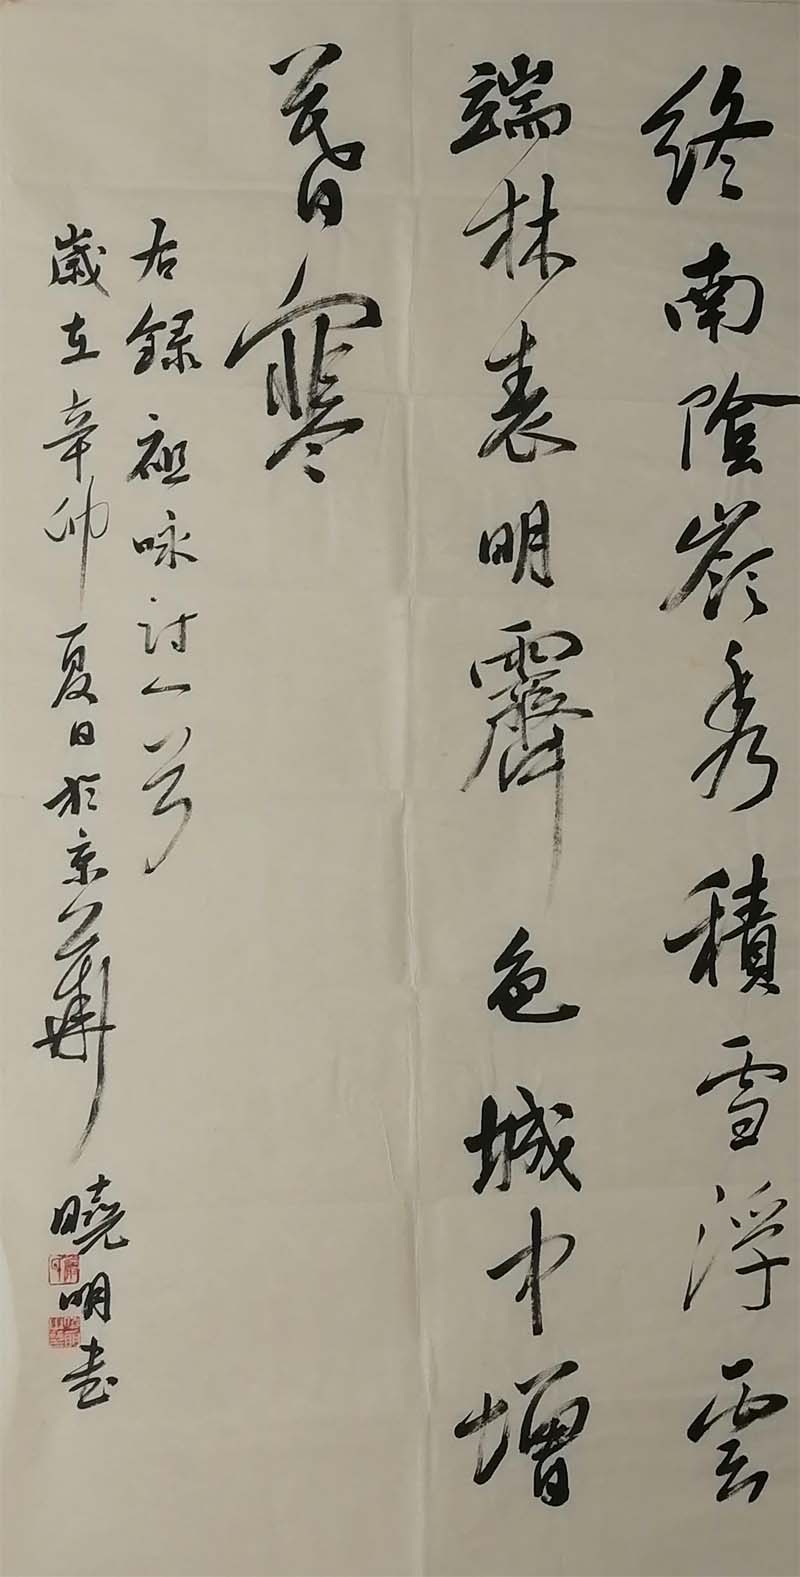 終南陰嶺秀積雪浮雲
端林表明霽色城中增
暮寒
右錄祖咏詩一首
歲在辛卯夏日於京華
曉明書